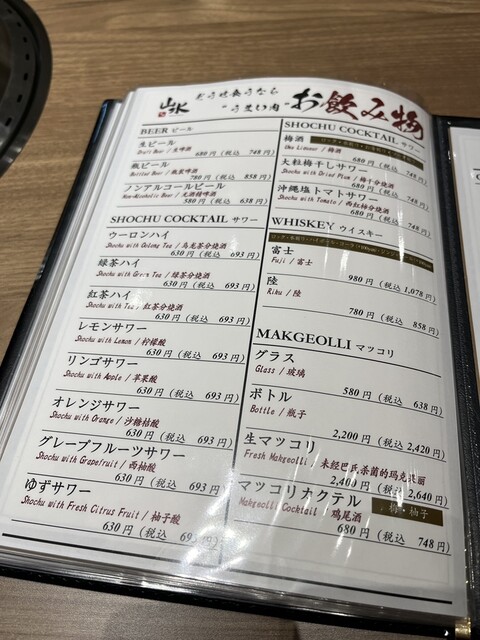 山水
どうせ食うなら
"うまい肉"
お飲み物
BEER ビール
生ビール
Draft Beer / 生啤酒
680 円 (税込 748 円)
瓶ビール
Bottled Beer / 瓶装啤酒
780 円 (税込 858 円)
ノンアルコールビール
Non-Alcoholic Beer / 无酒精啤酒
580 円 (税込 638 円)
SHOCHU COCKTAIL サワー
ウーロンハイ
Shochu with Oolong Tea / 乌龙茶分烧酒
630 円 (税込 693 円)
緑茶ハイ
Shochu with Green Tea / 绿茶分烧酒
630 円 (税込 693 円)
紅茶ハイ
Shochu with Tea / 红茶分烧酒
630 円 (税込 693 円)
レモンサワー
Shochu with Lemon / 柠檬酸
630 円 (税込 693 円)
リンゴサワー
Shochu with Apple / 苹果酸
630 円 (税込 693 円)
オレンジサワー
Shochu with Orange / 沙糖桔酸
630 円 (税込 693 円)
グレープフルーツサワー
Shochu with Grapefruit / 西柚酸
630 円 (税込 693 円)
ゆずサワー
Shochu with Fresh Citrus Fruit / 柚子酸
630 円 (税込 693 円)
SHOCHU COCKTAIL サワー
梅酒
Ume Liqueur / 梅酒
680 円 (税込 748 円)
大粒梅干しサワー
Shochu with Dried Plum / 梅干分烧酒
680 円 (税込 748 円)
沖縄塩トマトサワー
Shochu with Tomato / 西红柿分烧酒
680 円 (税込 748 円)
WHISKEY ウイスキー
富士
Fuji / 富士
980 円 (税込 1,078 円)
陸
Riku / 陸
780 円 (税込 858 円)
MAKGEOLLI マッコリ
グラス
Glass / 玻璃
580 円 (税込 638 円)
ボトル
Bottle / 瓶子
2,200 円 (税込 2,420 円)
生マッコリ
Fresh Makgeolli / 未经巴氏杀菌的玛克丽
2,400 円 (税込 2,640 円)
マッコリカクテル
Makgeolli Cocktail 鸡尾酒
680 円 (税込 748 円)